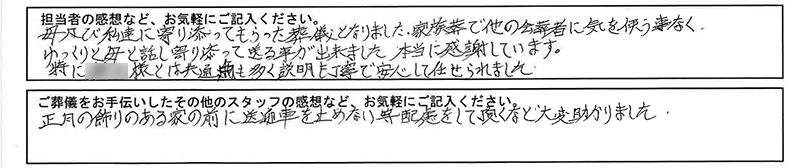 担当者の感想など、お気軽にご記入ください。
母及び私達に寄り添ってもらった葬儀となりました。家族葬で他の会葬者に気を使う事なく
ゆっくりと母と話し寄り添って送る事が出来ました。本当に感謝しています。
特に 様とは共通点も多く説明も丁寧で安心して任せられました。
ご葬儀をお手伝いしたその他のスタッフの感想など、お気軽にご記入ください。
正月の飾りのある家の前に送迎車を止めない等配慮をして頂くなど大変助かりました。